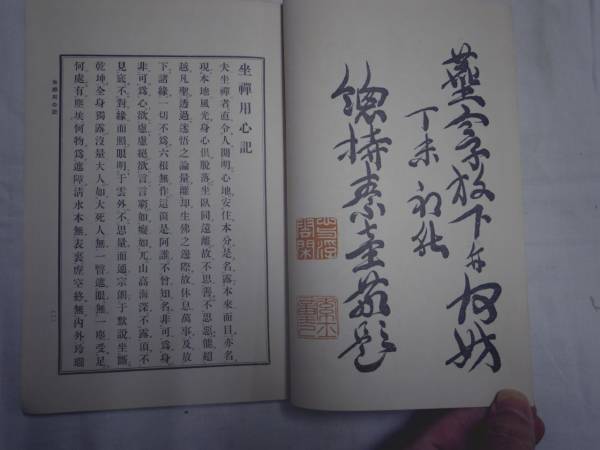 放下亦何妨
丁未初秋
總持素童敬題
坐禪用心記
夫坐禪者直令人開明心地安住本分是名露本來面目亦名
現本地風光身心俱脫落坐臥同遠離故不思善不思惡能超
越凡聖透過迷悟之論量離却生佛之邊際故休息萬事及放
下諸緣一切不爲六根無作這箇是阿誰不曾知名非可爲身
非可爲心欲慮慮絕欲言言窮如癡如兀山高海深不露頂不
見底不對緣而照眼明于雲外不思量而通宗朗于默說坐斷
乾坤全身獨露沒量大人如大死人無一翳遮眼無一塵受足
何處有塵埃何物爲遮障清水本無表裏虛空終無內外玲瓏
坐禪用心記